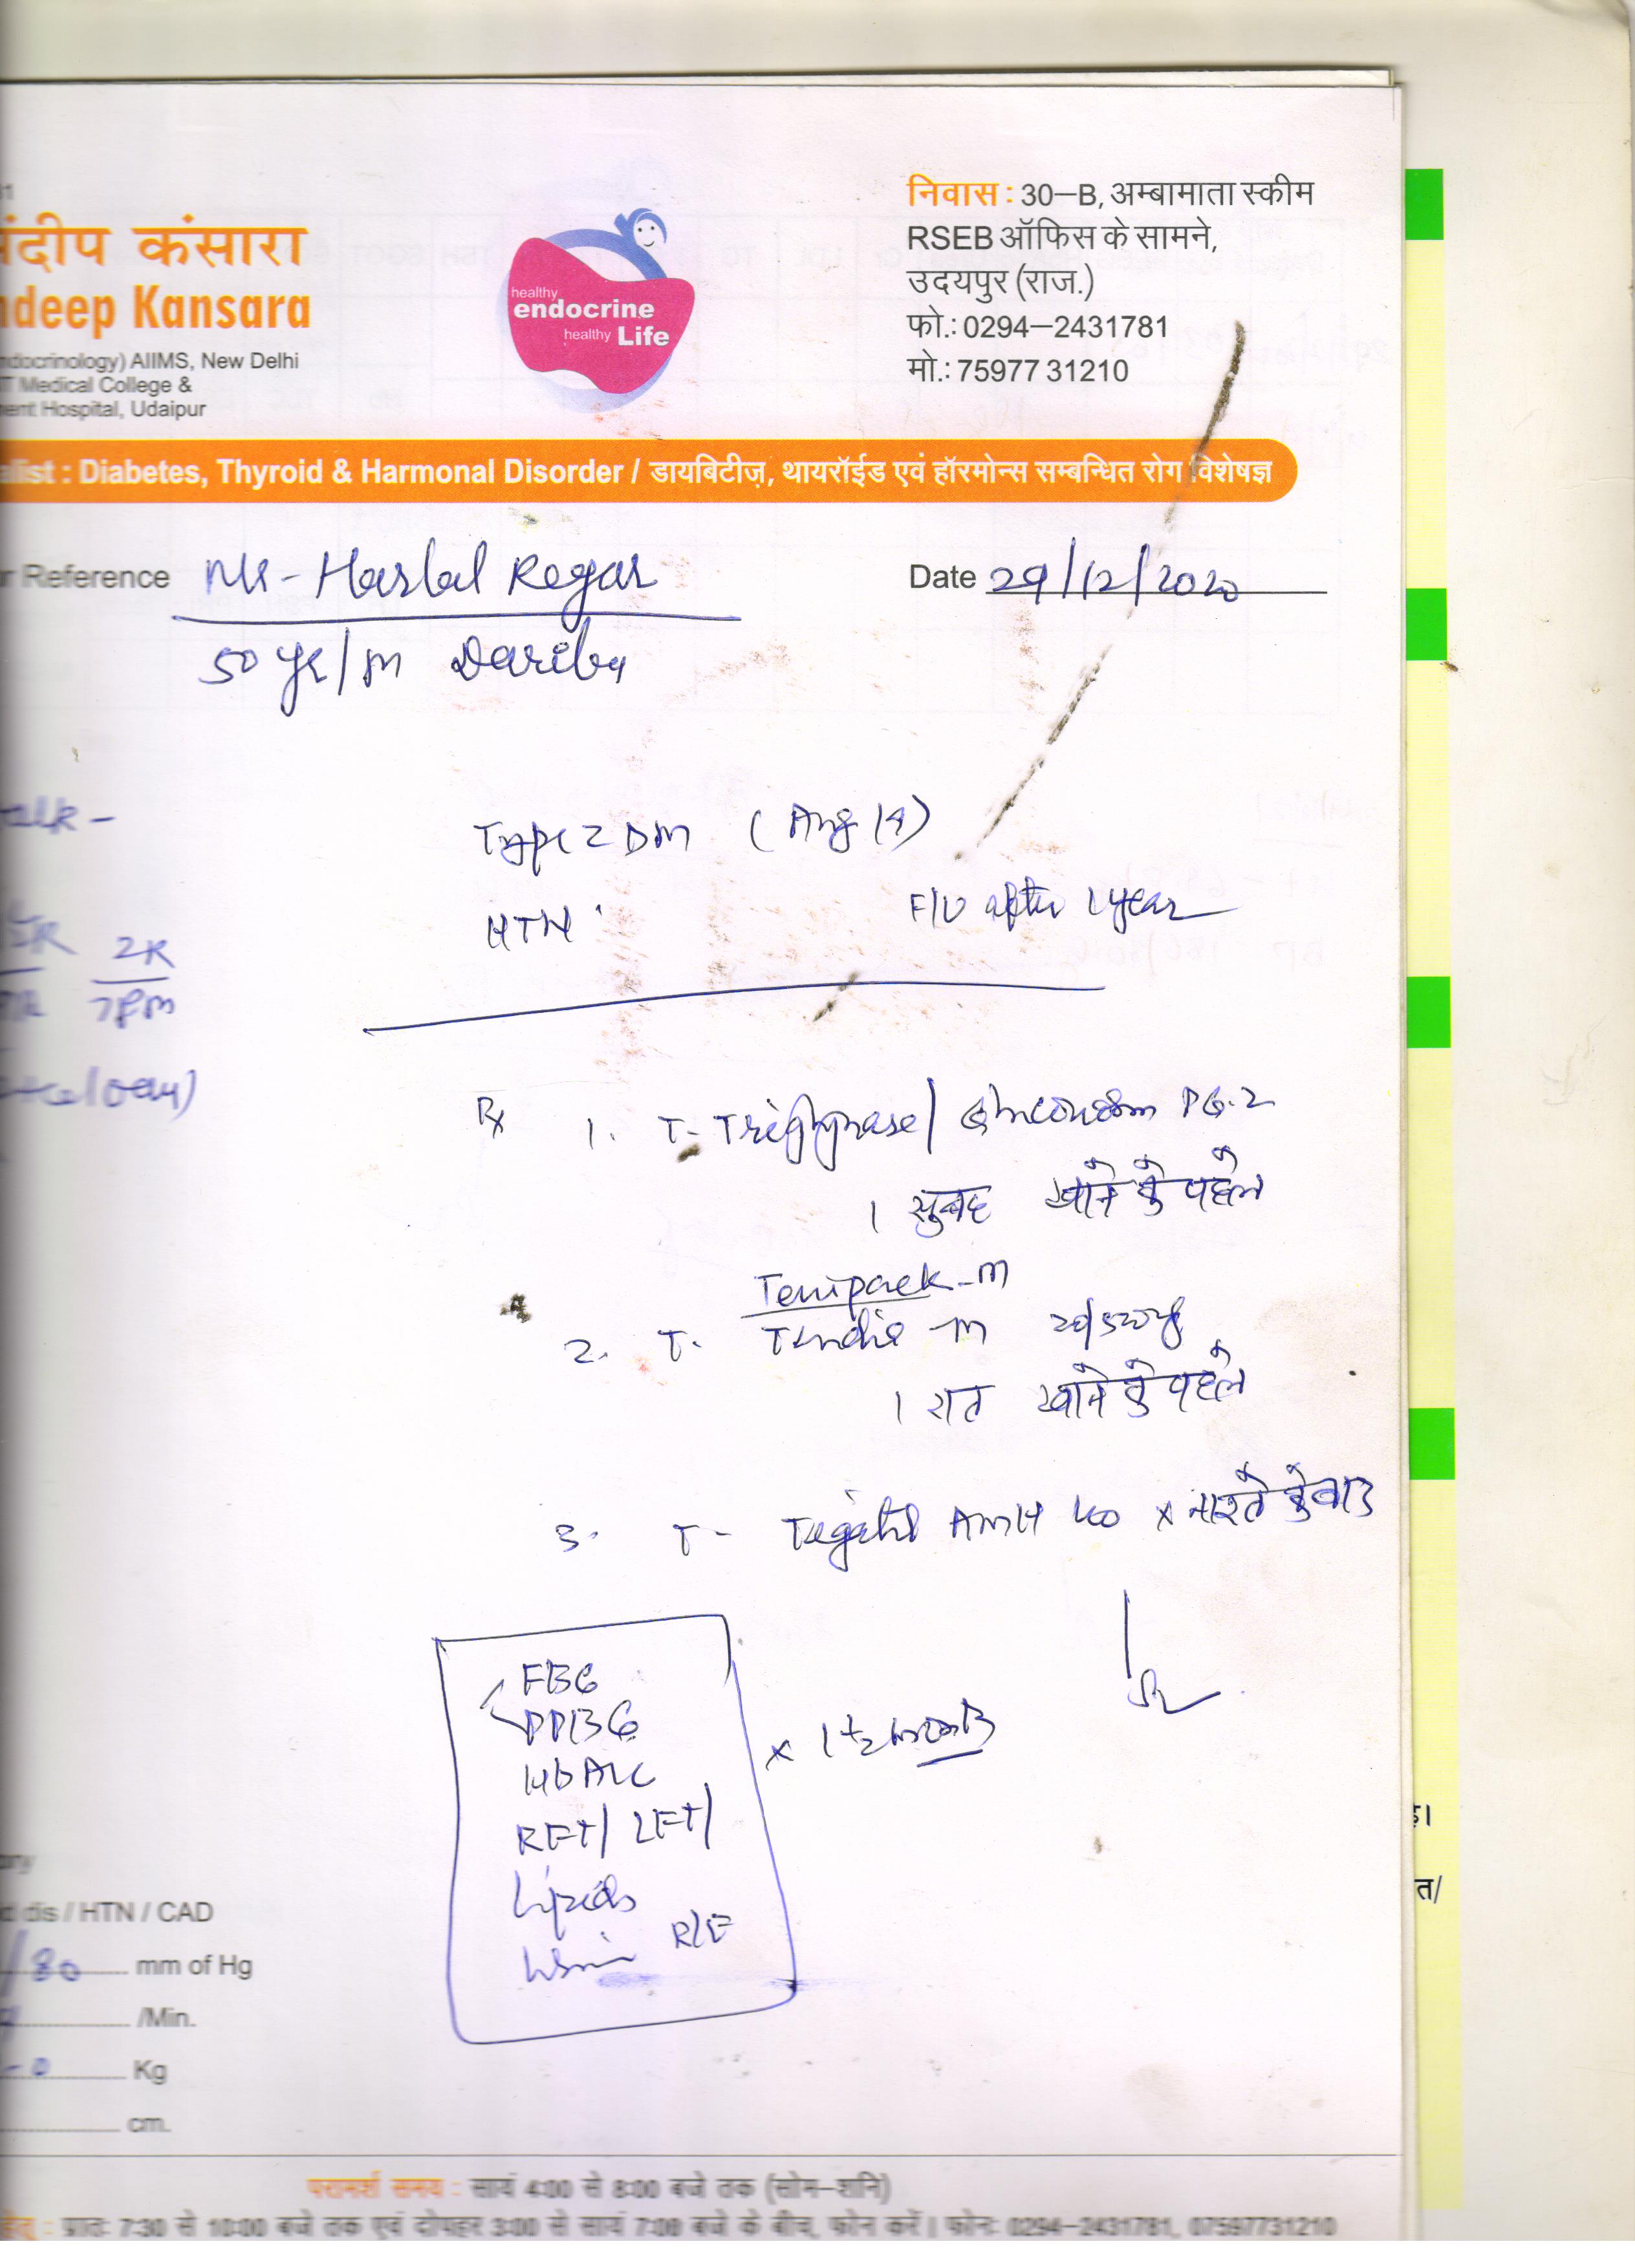 संदीप कंसारा
ndeep Kansara
ndocrinology) AIIMS, New Delhi
T Medical College &
ment Hospital, Udaipur
healthy
endocrine
healthy Life
निवास : 30–B, अम्बामाता स्कीम
RSEB ऑफिस के सामने,
उदयपुर (राज.)
फो.: 0294–2431781
मो.: 75977 31210
alist : Diabetes, Thyroid & Harmonal Disorder / डायबिटीज़, थायरॉईड एवं हॉरमोन्स सम्बन्धित रोग विशेषज्ञ
r Reference
Date 29/12/2020
50 yr/m Dariba
Type 2 DM (Aug 19)
HTN
F/U after 1 year
2K
7pm
Rx 1. T-
PG-2
1 सुबह खाने के पहले
2. T. -M
1 रात खाने के पहले
3. T- AMH x नाश्ते के बाद
FBG
PPBG
HbA1C
RFT/ LFT/
Lipids
R/E
dis / HTN / CAD
/80 mm of Hg
/Min.
Kg
cm.
परामर्श समय : सायं 4:00 से 8:00 बजे तक (सोम–शनि)
हेतु : प्रातः 7:30 से 10:00 बजे तक एवं दोपहर 3:00 से सायं 7:00 बजे के बीच, फोन करें। फोनः 0294–2431781, 07597731210